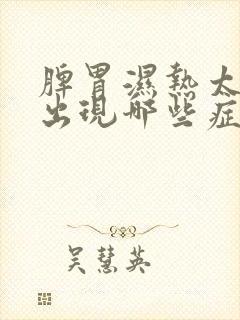 脾胃濕熱太
出現哪些症
吴慧英